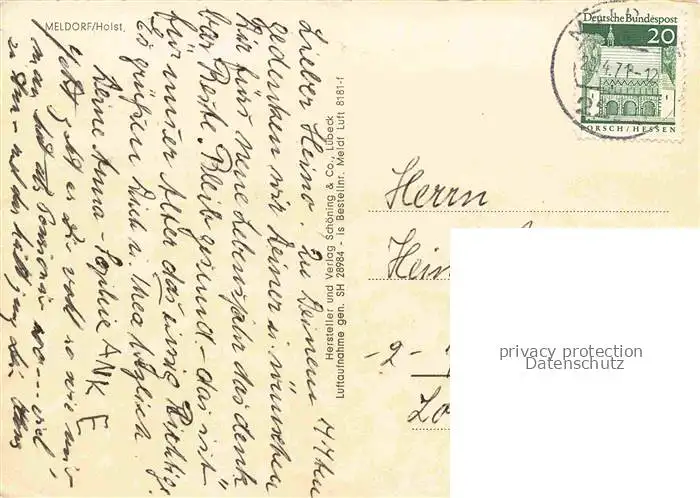 MELDORF/Holst.
Lieber Heino. Zu Deinem
gedenken wir Deiner u. wünschen
Dir fürs neue Lebensjahr das denk
bar Beste. Bleib gesund - das ist
für unser Alter das einzig Richtige.
Es grüßen Dich u. Thea herzlich
Deine Anna-Sophie ANKE
Jetzt geht es Dir wohl so wie mir
man hat als Pensionär viel
zu tun - und das
Hersteller und Verlag Schöning & Co., Lübeck
Luftaufnahme gen. SH 28984 - is Bestellnr. Meldf Luft 8181-f
Deutsche Bundespost
20
LORSCH/HESSEN
4.71-12
Herrn
Hein
-2-
privacy protection
Datenschutz